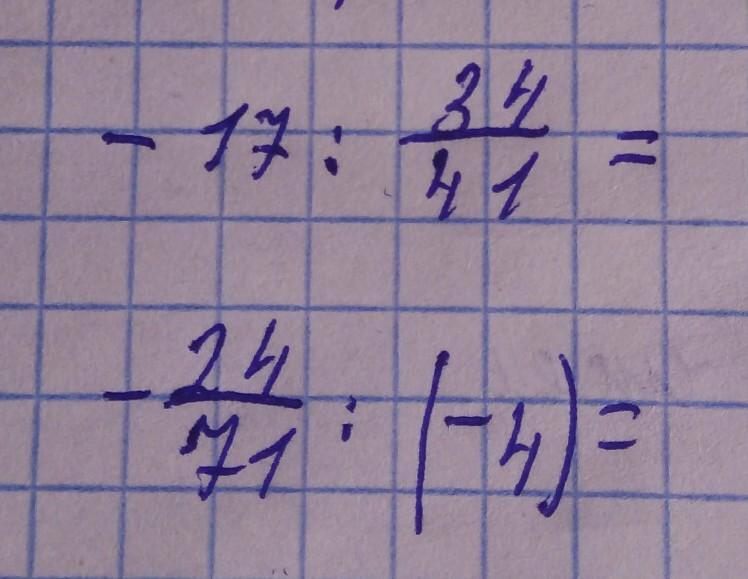 - 17 : 34/41 =
- 24/71 : (-4) =